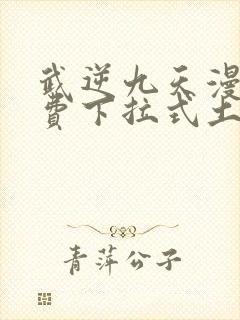 武逆九天漫
费下拉式土
青萍公子